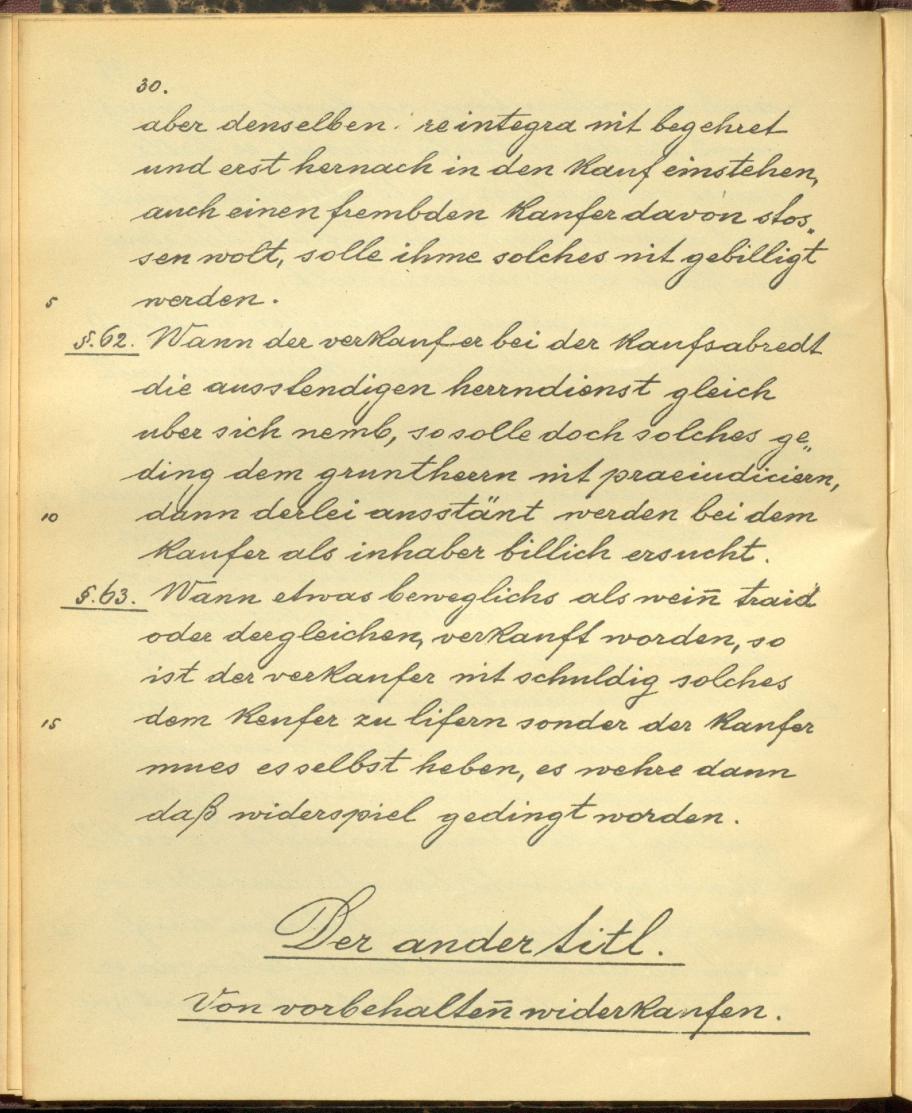 30.
aber denselben re integra nit begehret
und erst hernach in den kauf einstehen,
auch einen frembden kaufer davon stos„
sen wolt, solle ihme solches nit gebilligt
5 werden.
§.62. Wann der verkaufer bei der kaufsabredt
die ausstendigen herrndienst gleich
uber sich nemb, so solle doch solches ge„
ding dem gruntherrn nit praeiudiciern,
10 dann derlei ausstänt werden bei dem
kaufer als inhaber billich ersucht.
§.63. Wann etwas beweglichs als wein̅ traid
oder dergleichen, verkauft worden, so
ist der verkaufer nit schuldig solches
15 dem keufer zu lifern sonder der kaufer
mues es selbst heben, es wehre dann
daß widerspiel gedingt worden.
Der ander titl.
Von vorbehalten̅ widerkaufen.